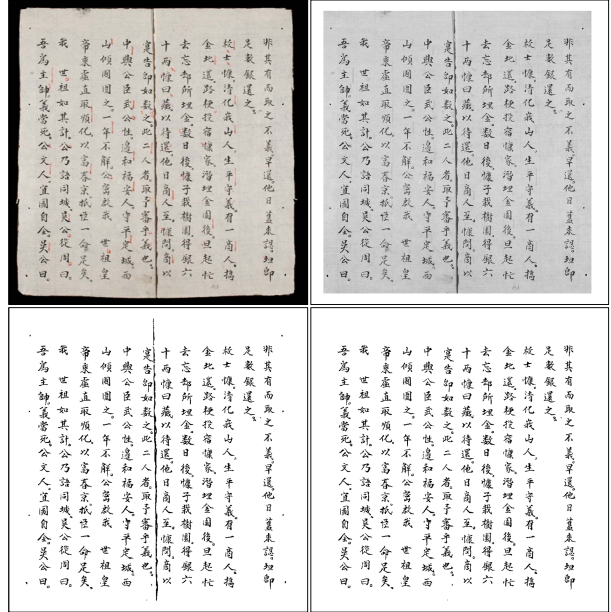 非其有而取之不義早還他日蓋來認坦即
足數銀還之
校士慷清化峩山人生平守義有一商人攜
金北道路梗投宿慷家潛埋金園後旦起忙
去忘却所埋金數日後慷子栽樹園得銀六
十两慷曰藏以待還他日商人至慷問商以
寔告即如數之此二人者取予審乎義也
中興公臣武公性邊和福安人守平定城西
山傾國圍之一年不解公嘗啟我 世祖皇
帝東虛直取順化以富春京抵臣一命足矣
我 世祖如其計公乃語同城吳公從周曰
吾為主帥義當死公文人宜圖自全吳公曰